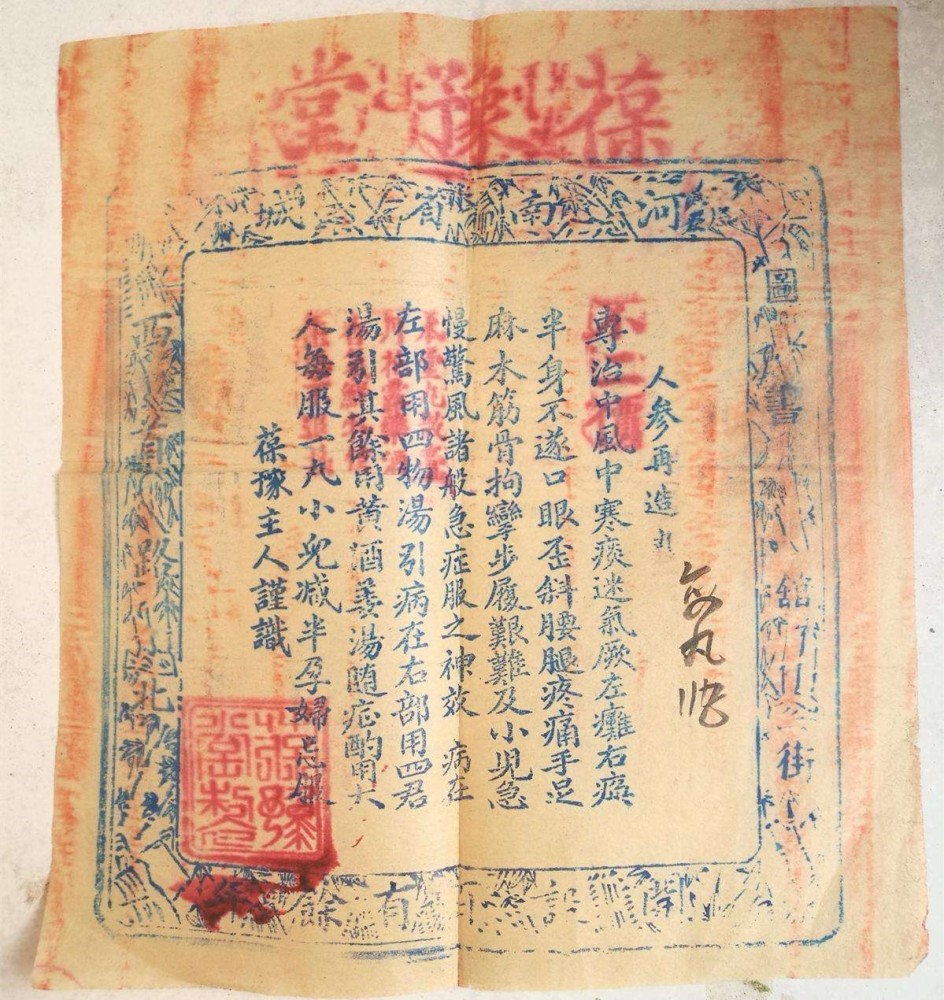 葆豫堂
河南省城
圖書館街
西首路北
開設百有餘年
人參再造丸
專治中風中寒痰迷氣厥左癱右瘓
半身不遂口眼歪斜腰腿疼痛手足
麻木筋骨拘攣步履艱難及小兒急
慢驚風諸般急症服之神效 病在
左部用四物湯引病在右部用四君
湯引其餘用黃酒姜湯隨症酌用大
人每服一丸小兒減半孕婦忌服
葆豫主人謹識
不二價